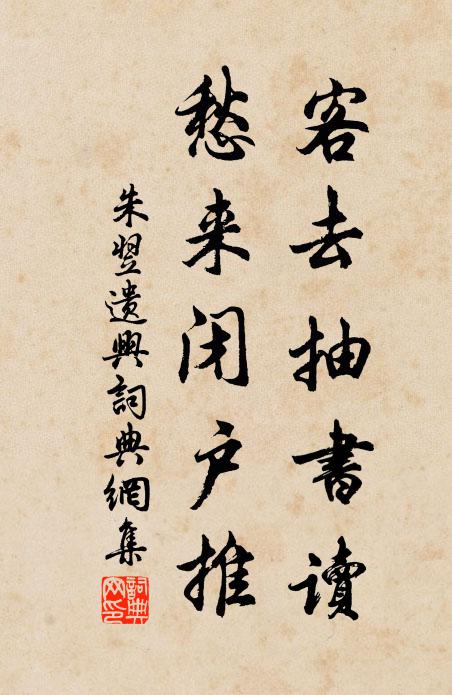 客去抽書讀
愁来闭户推
朱翌遣興詞典網集
詞典